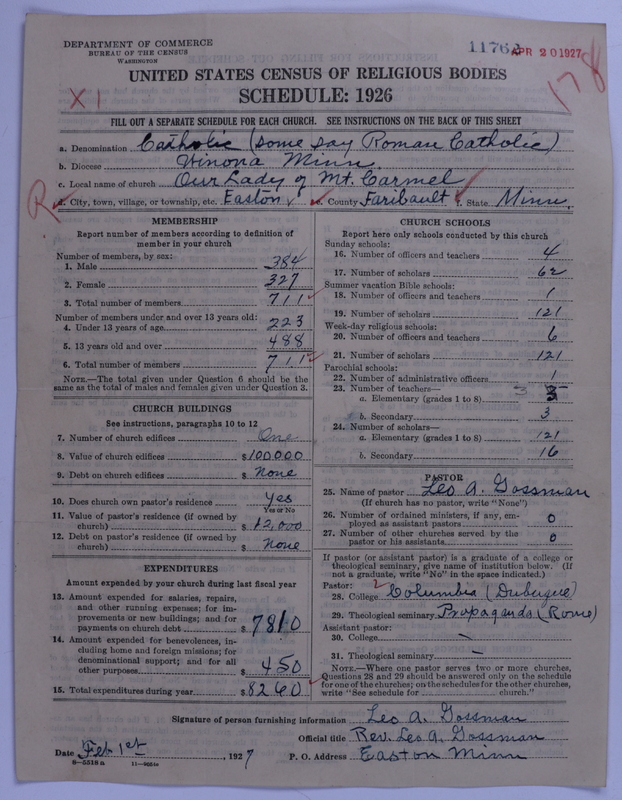 DEPARTMENT OF COMMERCE
BUREAU OF THE CENSUS
WASHINGTON
11762 APR 20 1927
178
X1
UNITED STATES CENSUS OF RELIGIOUS BODIES
SCHEDULE: 1926
FILL OUT A SEPARATE SCHEDULE FOR EACH CHURCH. SEE INSTRUCTIONS ON THE BACK OF THIS SHEET
a. Denomination Catholic (some say Roman Catholic)
b. Diocese Winona Minn.
c. Local name of church Our Lady of Mt. Carmel
R
d. City, town, village, or township, etc. Easton e. County Faribault f. State Minn.
MEMBERSHIP
Report number of members according to definition of
member in your church
Number of members, by sex:
1. Male 384
2. Female 327
3. Total number of members 711
Number of members under and over 13 years old:
4. Under 13 years of age 223
5. 13 years old and over 488
6. Total number of members 711
NOTE.—The total given under Question 6 should be the
same as the total of males and females given under Question 3.
CHURCH BUILDINGS
See instructions, paragraphs 10 to 12
7. Number of church edifices One
8. Value of church edifices $100000
9. Debt on church edifices $ None
10. Does church own pastor's residence Yes
Yes or No
11. Value of pastor's residence (if owned by
church) $12,000
12. Debt on pastor's residence (if owned by
church) $ None
EXPENDITURES
Amount expended by your church during last fiscal year
13. Amount expended for salaries, repairs,
and other running expenses; for im-
provements or new buildings; and for
payments on church debt $7810
14. Amount expended for benevolences, in-
cluding home and foreign missions; for
denominational support; and for all
other purposes $450
15. Total expenditures during year $8260
CHURCH SCHOOLS
Report here only schools conducted by this church
Sunday schools:
16. Number of officers and teachers 4
17. Number of scholars 62
Summer vacation Bible schools:
18. Number of officers and teachers 1
19. Number of scholars 121
Week-day religious schools:
20. Number of officers and teachers 6
21. Number of scholars 121
Parochial schools:
22. Number of administrative officers 1
23. Number of teachers—
a. Elementary (grades 1 to 8) 3
b. Secondary 3
24. Number of scholars—
a. Elementary (grades 1 to 8) 121
b. Secondary 16
PASTOR
25. Name of pastor Leo A. Gossman
(If church has no pastor, write "None")
26. Number of ordained ministers, if any, em-
ployed as assistant pastors 0
27. Number of other churches served by the
pastor or his assistants 0
If pastor (or assistant pastor) is a graduate of a college or
theological seminary, give name of institution below. (If
not a graduate, write "No" in the space indicated.)
Pastor:
28. College Columbia (Dubuque)
29. Theological seminary Propaganda (Rome)
Assistant pastor:
30. College —
31. Theological seminary —
NOTE.—Where one pastor serves two or more churches,
Questions 28 and 29 should be answered only on the schedule
for one of the churches; on the schedules for the other churches,
write "See schedule for church."
Signature of person furnishing information Leo A. Gossman
Official title Rev. Leo A. Gossman
Date Feb 1st, 1927 P. O. Address Easton Minn
8—5518 a